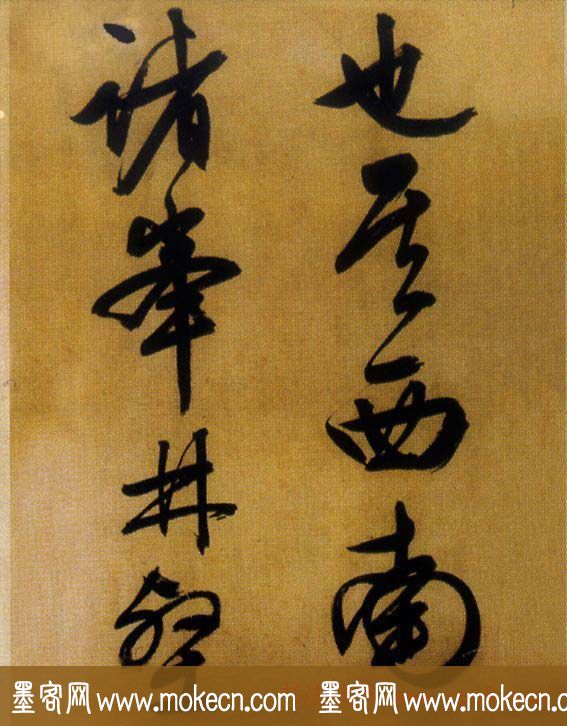 也其西南
諸峯林壑
墨客网 www.mokecn.com 墨客网 www.mokecn.com